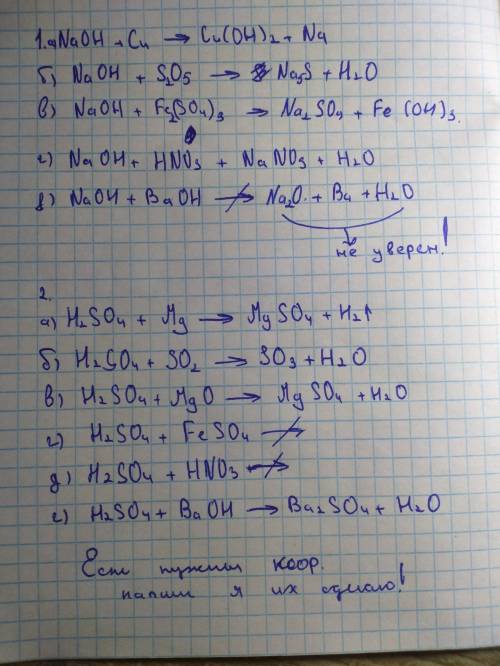 1.а NaOH + Cu → Cu(OH)2 + Na
б) NaOH + S2O5 → Na2S + H2O
в) NaOH + Fe2(SO4)3 → Na2SO4 + Fe(OH)3.
г) NaOH + HNO3 + NaNO3 + H2O
д) NaOH + BaOH ↛ Na2O + Ba + H2O
не уверен!
2.
а) H2SO4 + Mg → MgSO4 + H2↑
б) H2SO4 + SO2 → SO3 + H2O
в) H2SO4 + MgO → MgSO4 + H2O
г) H2SO4 + FeSO4 ↛
д) H2SO4 + HNO3 ↛
е) H2SO4 + BaOH → Ba2SO4 + H2O
Если нужны коор.
напиши я их сделаю!